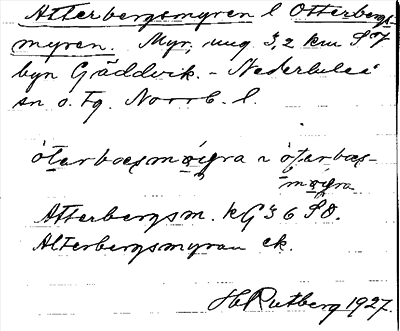 Atterbergsmyren l Otterbergs-
myren. Myr, ung 3,2 km SV
byn Gäddvik. - Nederluleå
sn o. Fg. Norrb. l.
òtarbæsmỳra ~ òtarbæs-
mỳra
Atterbergsm. kG 36 SO.
Alterbergsmyran ek.
H Rutberg 1927.